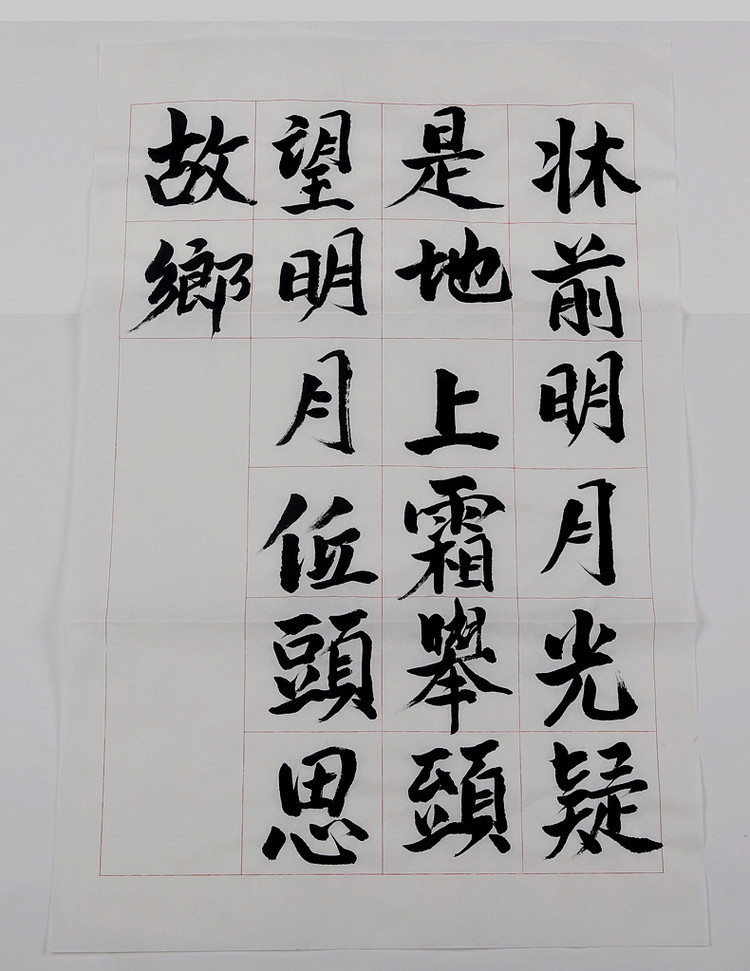 牀前明月光疑
是地上霜舉頭
望明月低頭思
故鄉